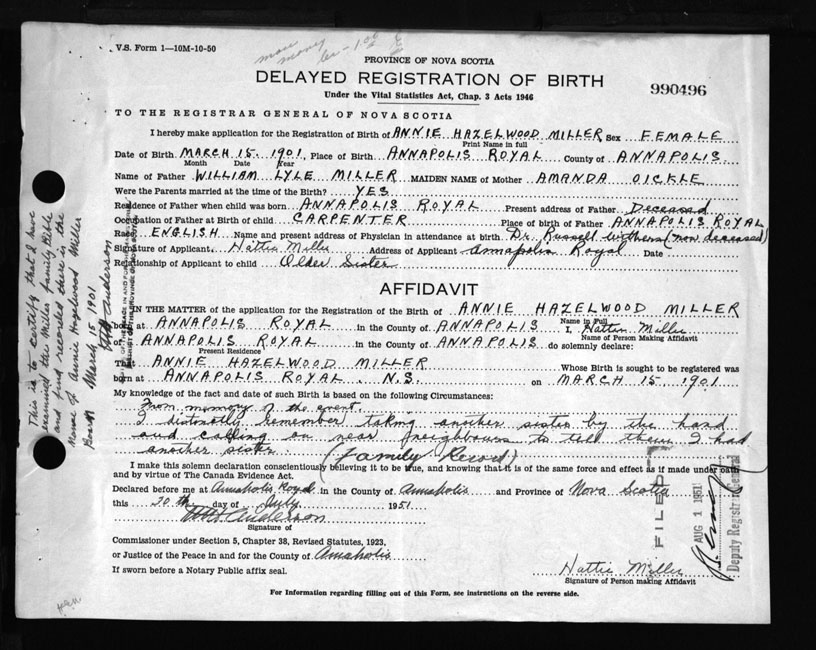 V.S. Form 1—10M-10-50
more money
PROVINCE OF NOVA SCOTIA
DELAYED REGISTRATION OF BIRTH
990496
Under the Vital Statistics Act, Chap. 3 Acts 1946
TO THE REGISTRAR GENERAL OF NOVA SCOTIA
I hereby make application for the Registration of Birth of ANNIE HAZELWOOD MILLER Sex FEMALE
Print Name in full
Date of Birth MARCH 15. 1901, Place of Birth ANNAPOLIS ROYAL County of ANNAPOLIS
Month Date Year
Name of Father WILLIAM LYLE MILLER MAIDEN NAME of Mother AMANDA OICKLE
Were the Parents married at the time of the Birth? YES
Residence of Father when child was born ANNAPOLIS ROYAL Present address of Father Deceased
Occupation of Father at Birth of child CARPENTER Place of birth of Father ANNAPOLIS ROYAL
Race ENGLISH Name and present address of Physician in attendance at birth Dr. Russell Withers (now deceased)
Signature of Applicant Hattie Miller Address of Applicant Annapolis Royal Date
Relationship of Applicant to child Older Sister
AFFIDAVIT
IN THE MATTER of the application for the Registration of Birth of ANNIE HAZELWOOD MILLER
Name in Full
born at ANNAPOLIS ROYAL in the County of ANNAPOLIS I, Hattie Miller
Name of Person Making Affidavit
of ANNAPOLIS ROYAL in the County of ANNAPOLIS do solemnly declare:
Present Residence
That ANNIE HAZELWOOD MILLER Whose Birth is sought to be registered was
born at ANNAPOLIS ROYAL. N.S. on MARCH 15. 1901
My knowledge of the fact and date of such Birth is based on the following Circumstances:
From memory of the event.
I distinctly remember taking another sister by the hand
and calling on near neighbours to tell them I had
another sister. (Family Record)
I make this solemn declaration conscientiously believing it to be true, and knowing that it is of the same force and effect as if made under oath
and by virtue of The Canada Evidence Act.
Declared before me at Annapolis Royal in the County of Annapolis and Province of Nova Scotia
this 20th day of July 1951
Anderson
Signature of
Commissioner under Section 5, Chapter 38, Revised Statutes, 1923,
or Justice of the Peace in and for the County of Annapolis
If sworn before a Notary Public affix seal.
Hattie Miller
Signature of Person making Affidavit
For Information regarding filling out of this Form, see instructions on the reverse side.
This is to certify that I have
examined the Miller family Bible
and find recorded there in the
name of Annie Hazelwood Miller
Born March 15 1901
Anderson
FILED
AUG 1 1951
Deputy Registrar General